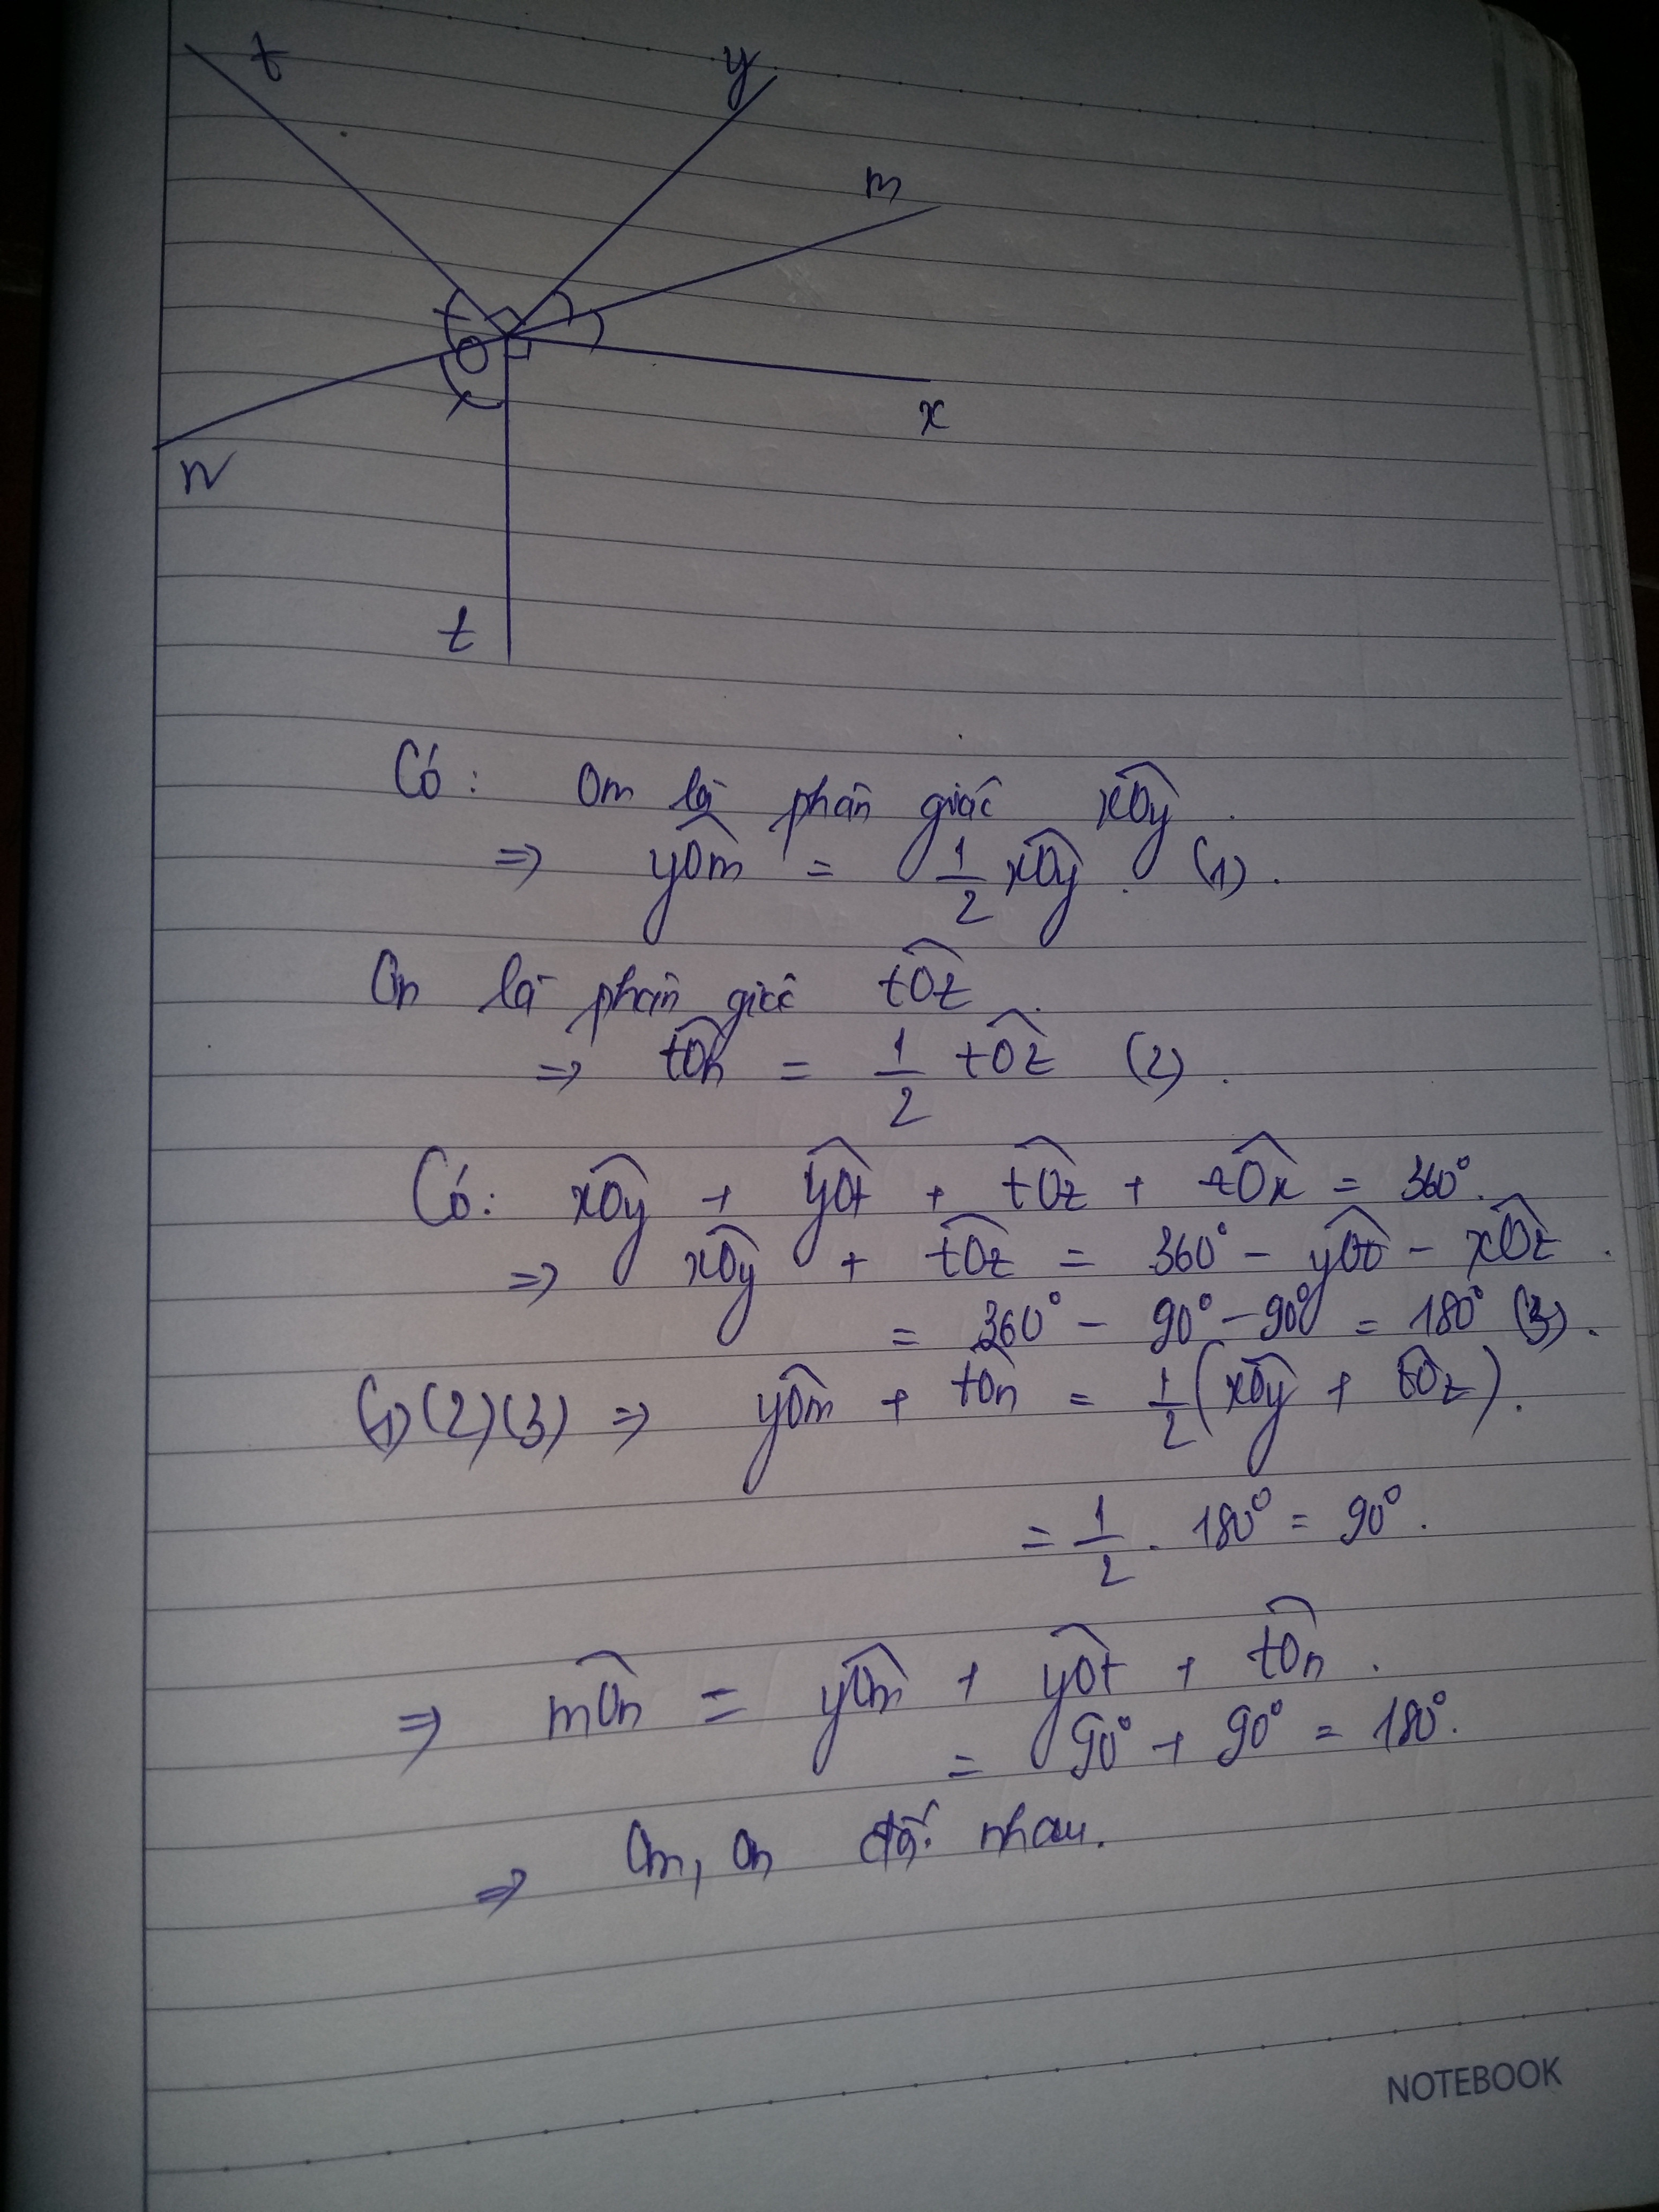 t
y
m
O
x
n
t
Có: Om là phân giác xÔy.
⇒ yÔm = 1/2 xÔy. (1).
On là phân giác tÔz.
⇒ tÔn = 1/2 tÔz (2).
Có: xÔy + yÔt + tÔz + zÔx = 360°.
⇒ xÔy + tÔz = 360° - yÔt - xÔz.
= 360° - 90° - 90° = 180° (3).
(1)(2)(3) ⇒ yÔm + tÔn = 1/2 (xÔy + tÔz).
= 1/2 . 180° = 90°.
⇒ mÔn = yÔm + yÔt + tÔn.
= 90° + 90° = 180°.
⇒ Om, On đối nhau.
NOTEBOOK